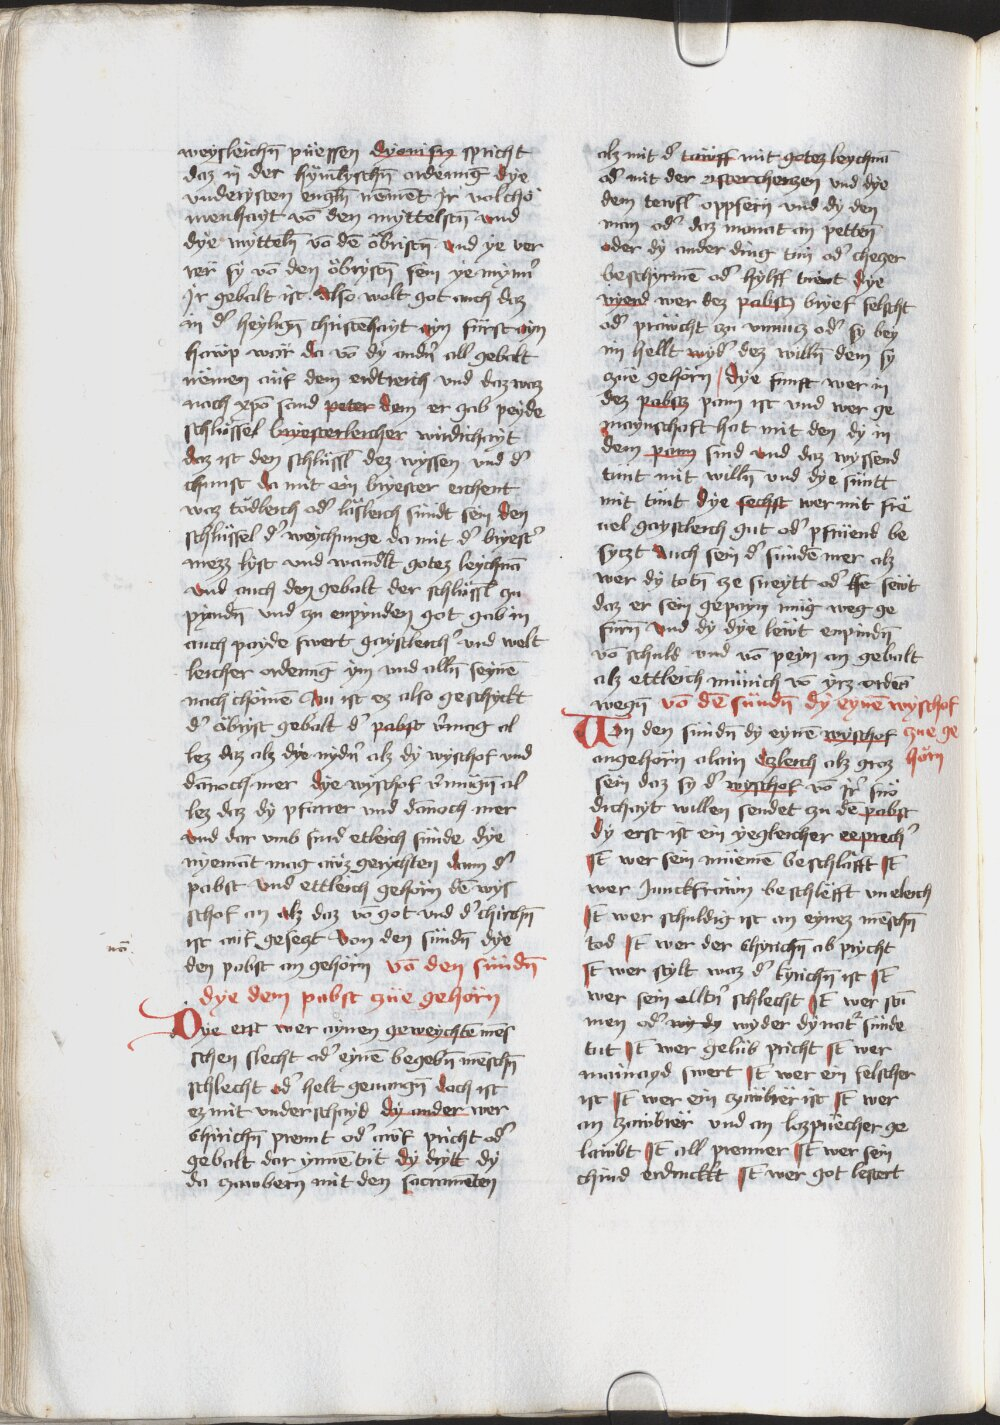 weysleichn̄ püessen dyonisy spricht
daz in der hymlyschn̄ ordenūg dye
vnderysten engln̄ nement jr volchō
menhayt vō den myttelstn̄ vnd
dye mytteln̄ vō dē öbristn̄ vnd ye ver
rer sy vō den öbrystn̄ sein ye myn̄
jr gebalt ist Also wolt got auch daz
in d' heylign̄ christēhayt ayn fürst ayn
hawp wär da vō dy andn̄ all gebalt
nēmen auf dem erdtreich vnd daz waz
nach xpō sand peter dem er gab peyde
schlüssel bryesterleicher wirdichayt
daz ist den schlüssl dez wyssen vnd d'
chunst da mit ein bryester erchent
waz tödleich od' läsleich sündt sein den
schlüssel d' weychunge da mit d' bryest'
mezz lyst vnd wandlt gotez leychnā
vnd auch den gebalt der schlüssl zu
pyndn̄ vnd zu enpynden got gab in
auch payde swert gaystleich' vnd welt
leicher ordenūg ym vnd alln̄ seynē
nach chömen Nu ist ez also geschyckt
d' öbryst gebalt d' pabst v'mag al
lez daz alz dye nydn̄ alz dy wyschof vnd
dānoch mer dye wyschof v'mügn̄ al
lez daz dy pfarrer vnd dānoch mer
vnd dar vmb sind etleich sünde dye
nyemāt mag auz gerychten dann d'
pabst vnd ettleich gehörn dē wys
schof an alz daz vō got vnd d' chirchn̄
ist auf gesezt Von den sündn̄ dye
den pabst an gehörn vō den sündn̄
dye dem pabst zue gehörn
Dye erst wer aynen geweychtē mēs
schen slecht od' eynē begebn̄ mēschn̄
schlecht od' helt geuangn̄ doch ist
ez mit vnderschayd dy ander wer
chirichn̄ prennt od' auf pricht od'
gebalt dar ynnē tüt dy drytt dy
da zawbern mit den sacramēten
alz mit d' tawff mit gotez leychnā
od' mit der ostercherzen vnd dye
dem tewfl oppfern vnd dy den
man od' daz monat an petten
oder dy ander ding tün od' checzer
beschyrmē od' hylff tünt dye
vyerd wer dez pabstz bryef felscht
od' präwcht zu vnnucz od' sy bey
im hellt wyd' dez willn̄ dem sy
zue gehörn / dye funft wer in
dez pabstz pann ist vnd wer ge
maynschoft hat mit den dy in
dem pann sind vnd daz wyssend
tünt mit willn̄ vnd dye süntt
mit tünt dye sechst wer mit frë
uel gaystleich gut od' pfrüend be
syczt Auch sein d' sündē mer alz
wer dy totn̄ ze sneytt od' sewt
daz er sein gepayn müg weg ge
fürn vnd dy dye lewt enpindn̄
vō schuld vnd vō peyn an gebalt
alz ettleich münich vō yrz ordēs
wegn̄ vō dē sündn̄ dy eynē wyschof
Von den sündn̄ dy eynē wyschof zue ge
angehörn alain eczleich alz groz hörn
sein daz sy d' wyschof vō jr' snö
dichayt willen sendet zu dē pabst
dy erst ist ein yegleicher eeprech'
jt̄ wer sein müemē beschläfft jt̄
wer junckfrawn beschlefft vneleich
jt̄ wer schuldig ist an eynez mēschn̄
tod jt̄ wer der chyrichn̄ ab prycht
jt̄ wer stylt waz d' kyrichn̄ ist jt̄
wer sein elltn̄ schlecht jt̄ wer stū
men od' wyder dy nat' sünde
tut jt̄ wer gelüb pricht jt̄ wer
mainayd swert jt̄ wer ein felscher
ist jt̄ wer ein zawbrër ist jt̄ wer
an zawbrër vnd an lozpüecher ge
lawbt jt̄ all prenner jt̄ wer sein
chind erdruckt jt̄ wer got lestert